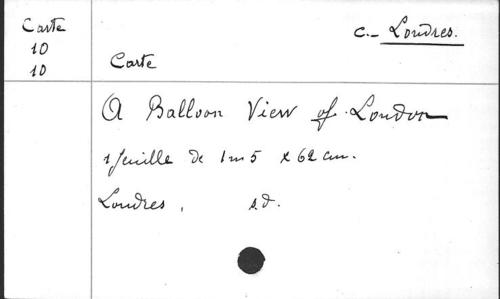 Carte
10
10
C.- Londres.
Carte
A Balloon View of London
1 feuille de 1m5 x 62 cm.
Londres, s.d.